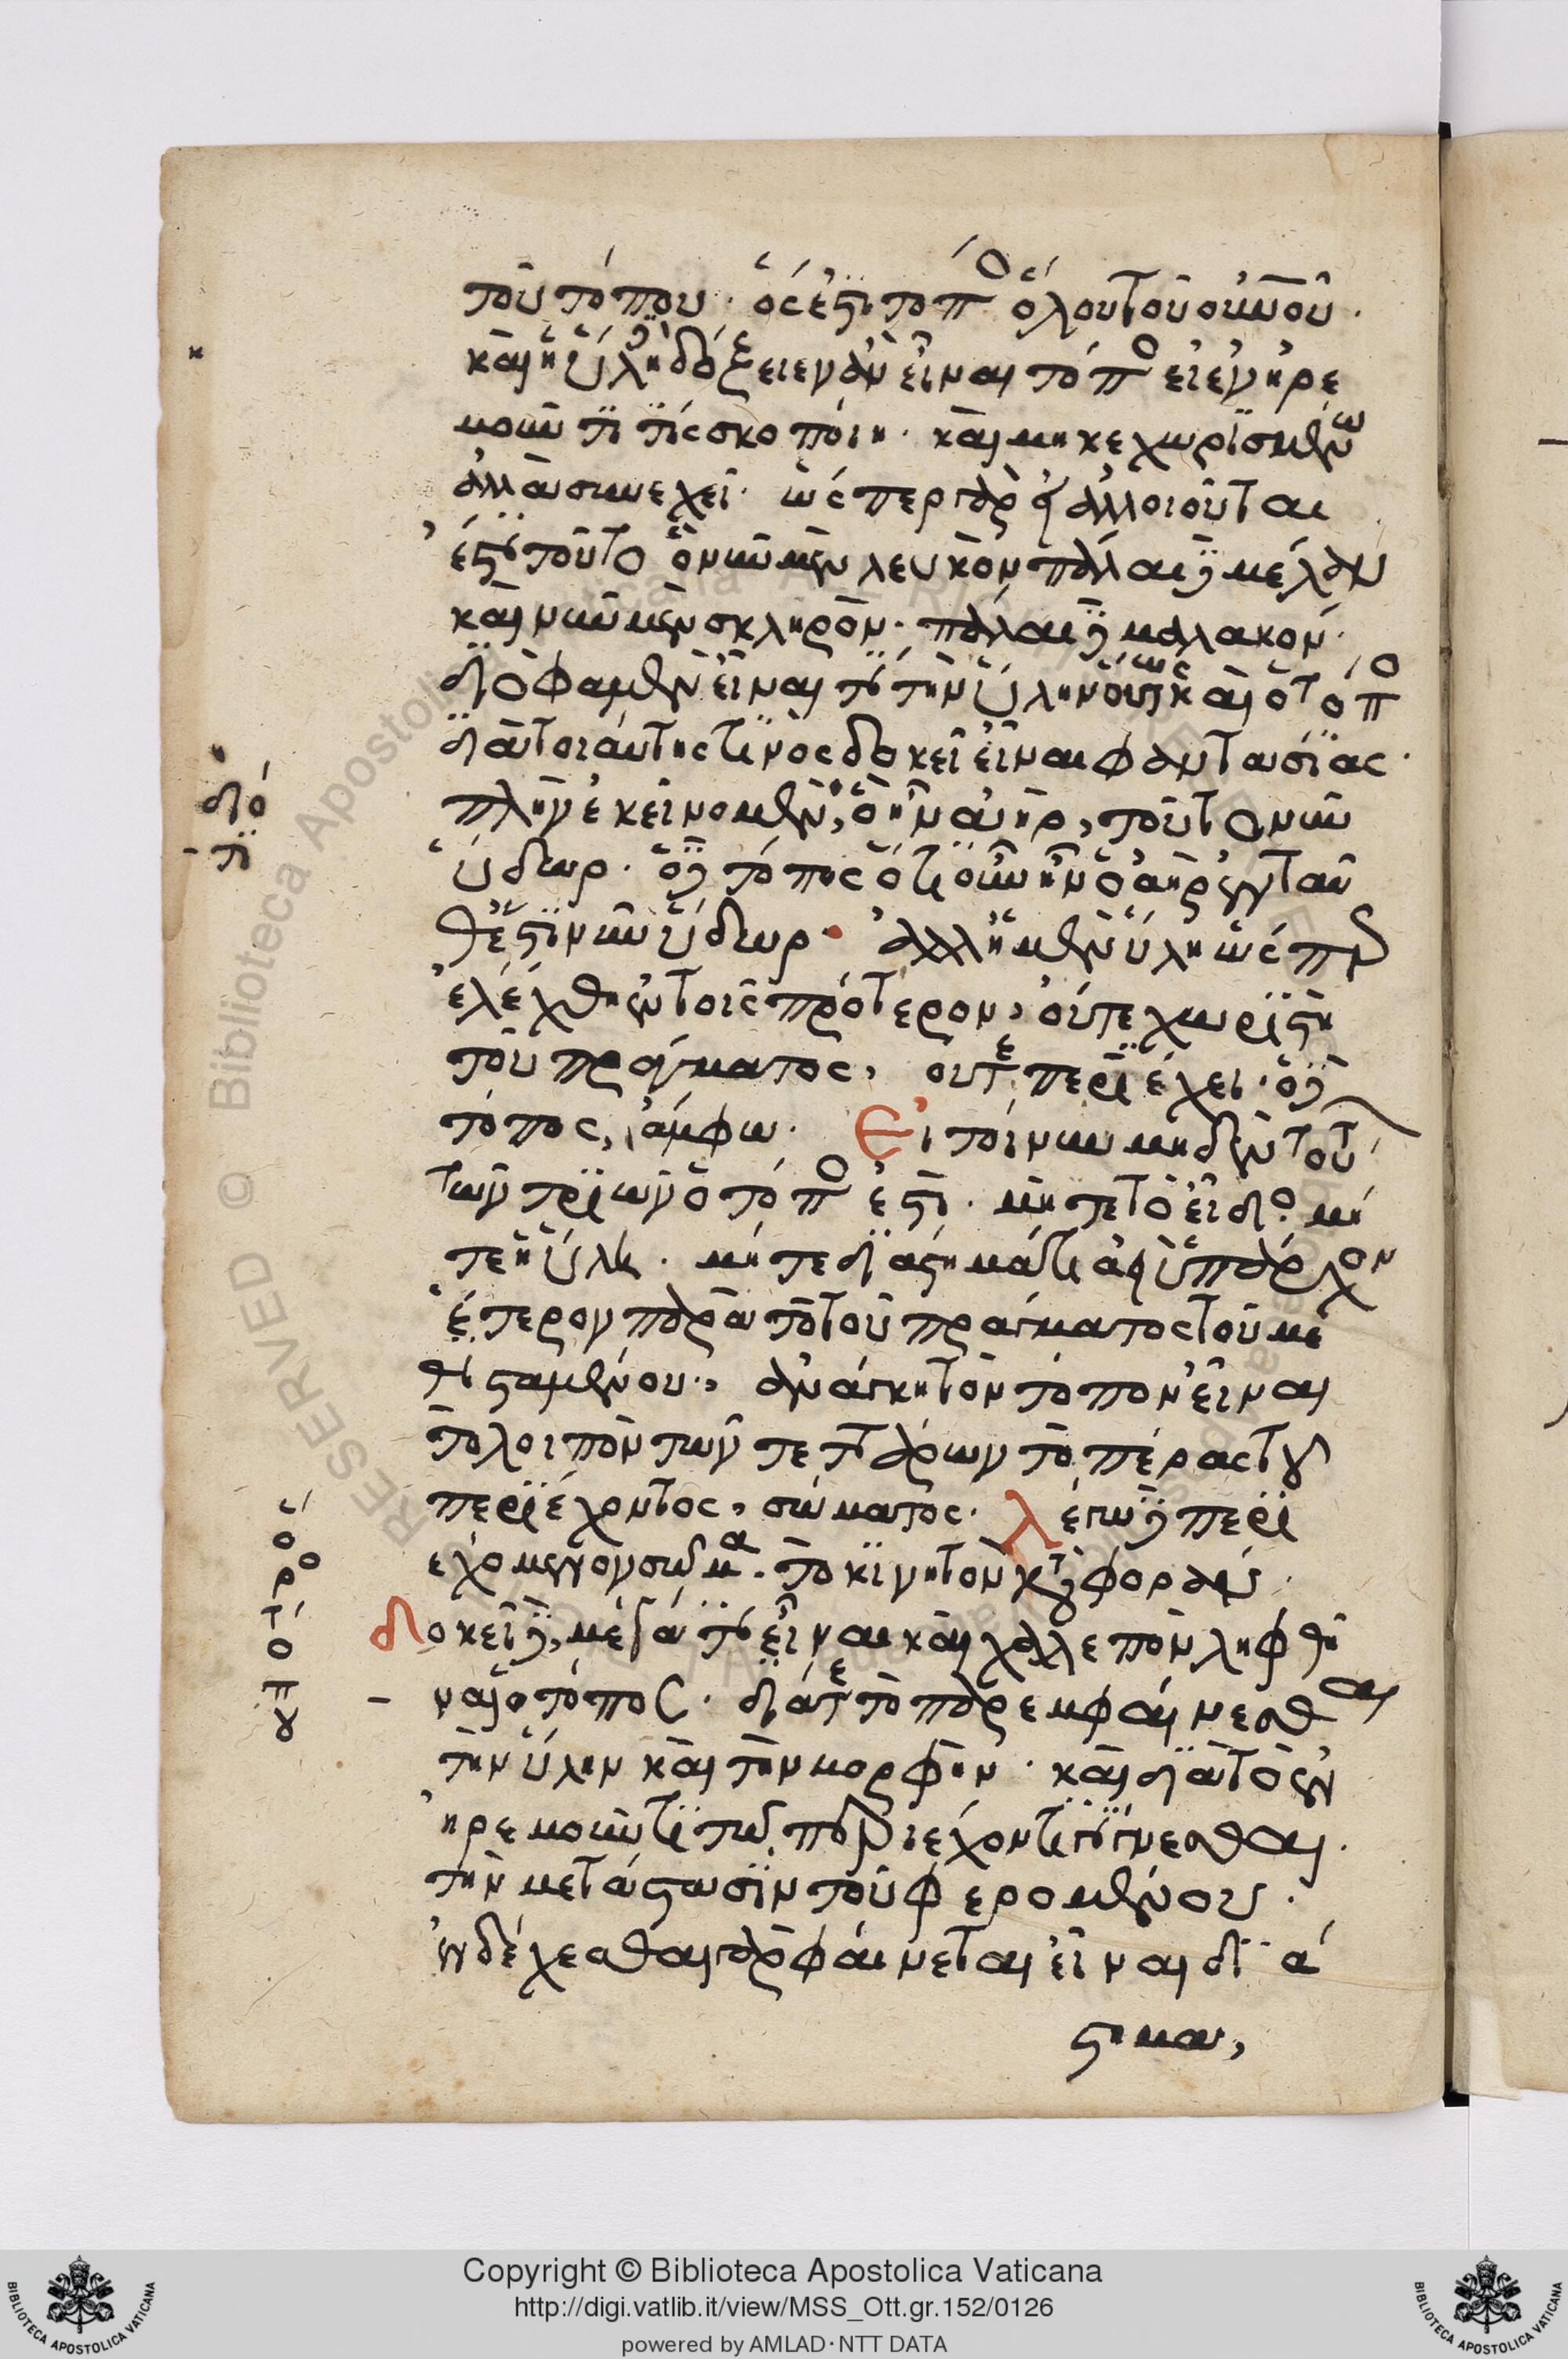 τοῦ τόπου· ὅς ἐστι τόπος ὅλου τοῦ οὐνοῦ·
καὶ ἡ ὕλη δὲ δόξειεν ἂν εἶναι τόπος εἰ ἐν ἠρε
μοῦντί τις σκοποίη· καὶ μὴ κεχωρισμένω
ἀλλὰ συνεχεῖ· ὥσπερ γὰρ εἰ ἀλλοιοῦται
ἔστι τοῦτο ὃ νῦν μὲν λευκὸν πάλαι δὲ μέλαν
καὶ νῦν μὲν σκληρόν· πάλαι δὲ μαλακόν·
διό φαμεν εἶναί τι τὴν ὕλην οὕτως καὶ ὁ τόπος
διὰ τοιαύτης τινὸς δοκεῖ εἶναι φαντασίας·
πλὴν ἐκεῖνο μὲν, ὃ ἦν ἀὴρ, τοῦτο νῦν
ὕδωρ· ὁ δὲ τόπος ὅτι οὗ ἦν ὁ ἀὴρ ἐνταῦ
θ' ἔστι νῦν ὕδωρ· ἀλλ' ἡ μὲν ὕλη ὥσπερ
ἐλέχθη ἐν τοῖς πρότερον, οὔτε χωριστὴ
τοῦ πράγματος, οὔτε περιέχει· ὁ δὲ
τόπος, ἄμφω· Εἰ τοίνυν μηδὲν τού
των τριῶν ὁ τόπος ἐστί· μήτε τὸ εἶδος μή
τε ἡ ὕλη· μήτε διάστημά τι ἀεὶ ὑπάρχον
ἕτερον παρὰ τὸ τοῦ πράγματος τοῦ με
θισταμένου, ἀνάγκη τὸν τόπον εἶναι
τὸ λοιπὸν τῶν τεττάρων τὸ πέρας τοῦ
περιέχοντος, σώματος· λέγω δὲ περι
εχόμενον σῶμα· τὸ κινητὸν κατὰ φοράν·
δοκεῖ δὲ, μέγα τι εἶναι καὶ χαλεπὸν ληφθῆ
ναι ὁ τόπος· διά τε τὸ παρεμφαίνεσθαι
τὴν ὕλην καὶ τὴν μορφήν· καὶ διὰ τὸ ἐν
ἠρεμοῦντι τῶ περιέχοντι γίγνεσθαι·
τὴν μετάστασιν τοῦ φερομένου·
ἐνδέχεσθαι γὰρ φαίνεται εἶναι διά
στημα,
διό
τι
Copyright © Biblioteca Apostolica Vaticana
http://digi.vatlib.it/view/MSS_Ott.gr.152/0126
powered by AMLAD·NTT DATA